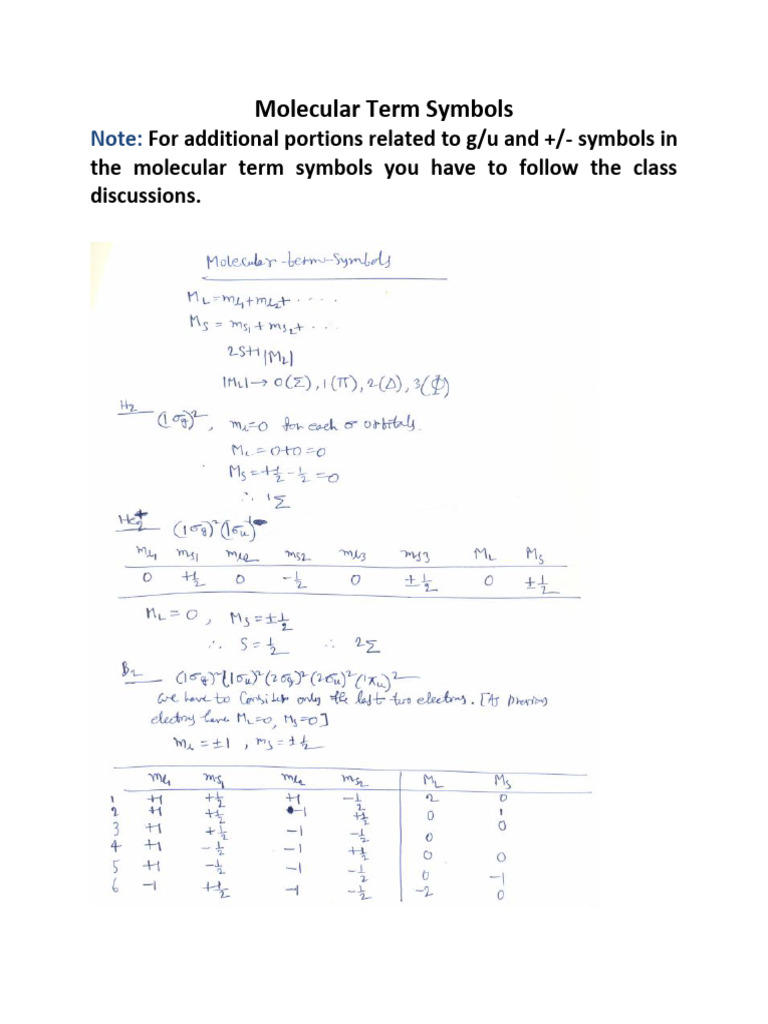 Molecular Term Symbols
Note: For additional portions related to g/u and +/- symbols in
the molecular term symbols you have to follow the class
discussions.
Molecular-term-Symbols
M_L = m_l₁ + m_l₂ + · · · · ·
M_S = m_s₁ + m_s₂ + · · ·
2S+1 |M_L|
|M_L| → 0(Σ), 1(Π), 2(Δ), 3(Φ)
H₂ (1σg)², m_l=0 for each σ orbitals.
M_L = 0+0 = 0
M_S = +½ - ½ = 0
∴ ¹Σ
He₂⁺ (1σg)²(1σu)¹
m_l₁ m_s₁ m_l₂ m_s₂ m_l₃ m_s₃ M_L M_S
0 +½ 0 -½ 0 ±½ 0 ±½
M_L = 0, M_S = ±½
∴ S = ½ ∴ 2Σ
B₂ (1σg)²(1σu)²(2σg)²(2σu)²(1πu)²
We have to Consider only the last two electrons. [As previous
electrons have M_L=0, M_S=0]
m_l = ±1, m_s = ±½
m_l₁ m_s₁ m_l₂ m_s₂ M_L M_S
1 +1 +½ +1 -½ 2 0
2 +1 +½ -1 +½ 0 1
3 +1 +½ -1 -½ 0 0
4 +1 -½ -1 +½ 0 0
5 +1 -½ -1 -½ 0 -1
6 -1 +½ -1 -½ -2 0